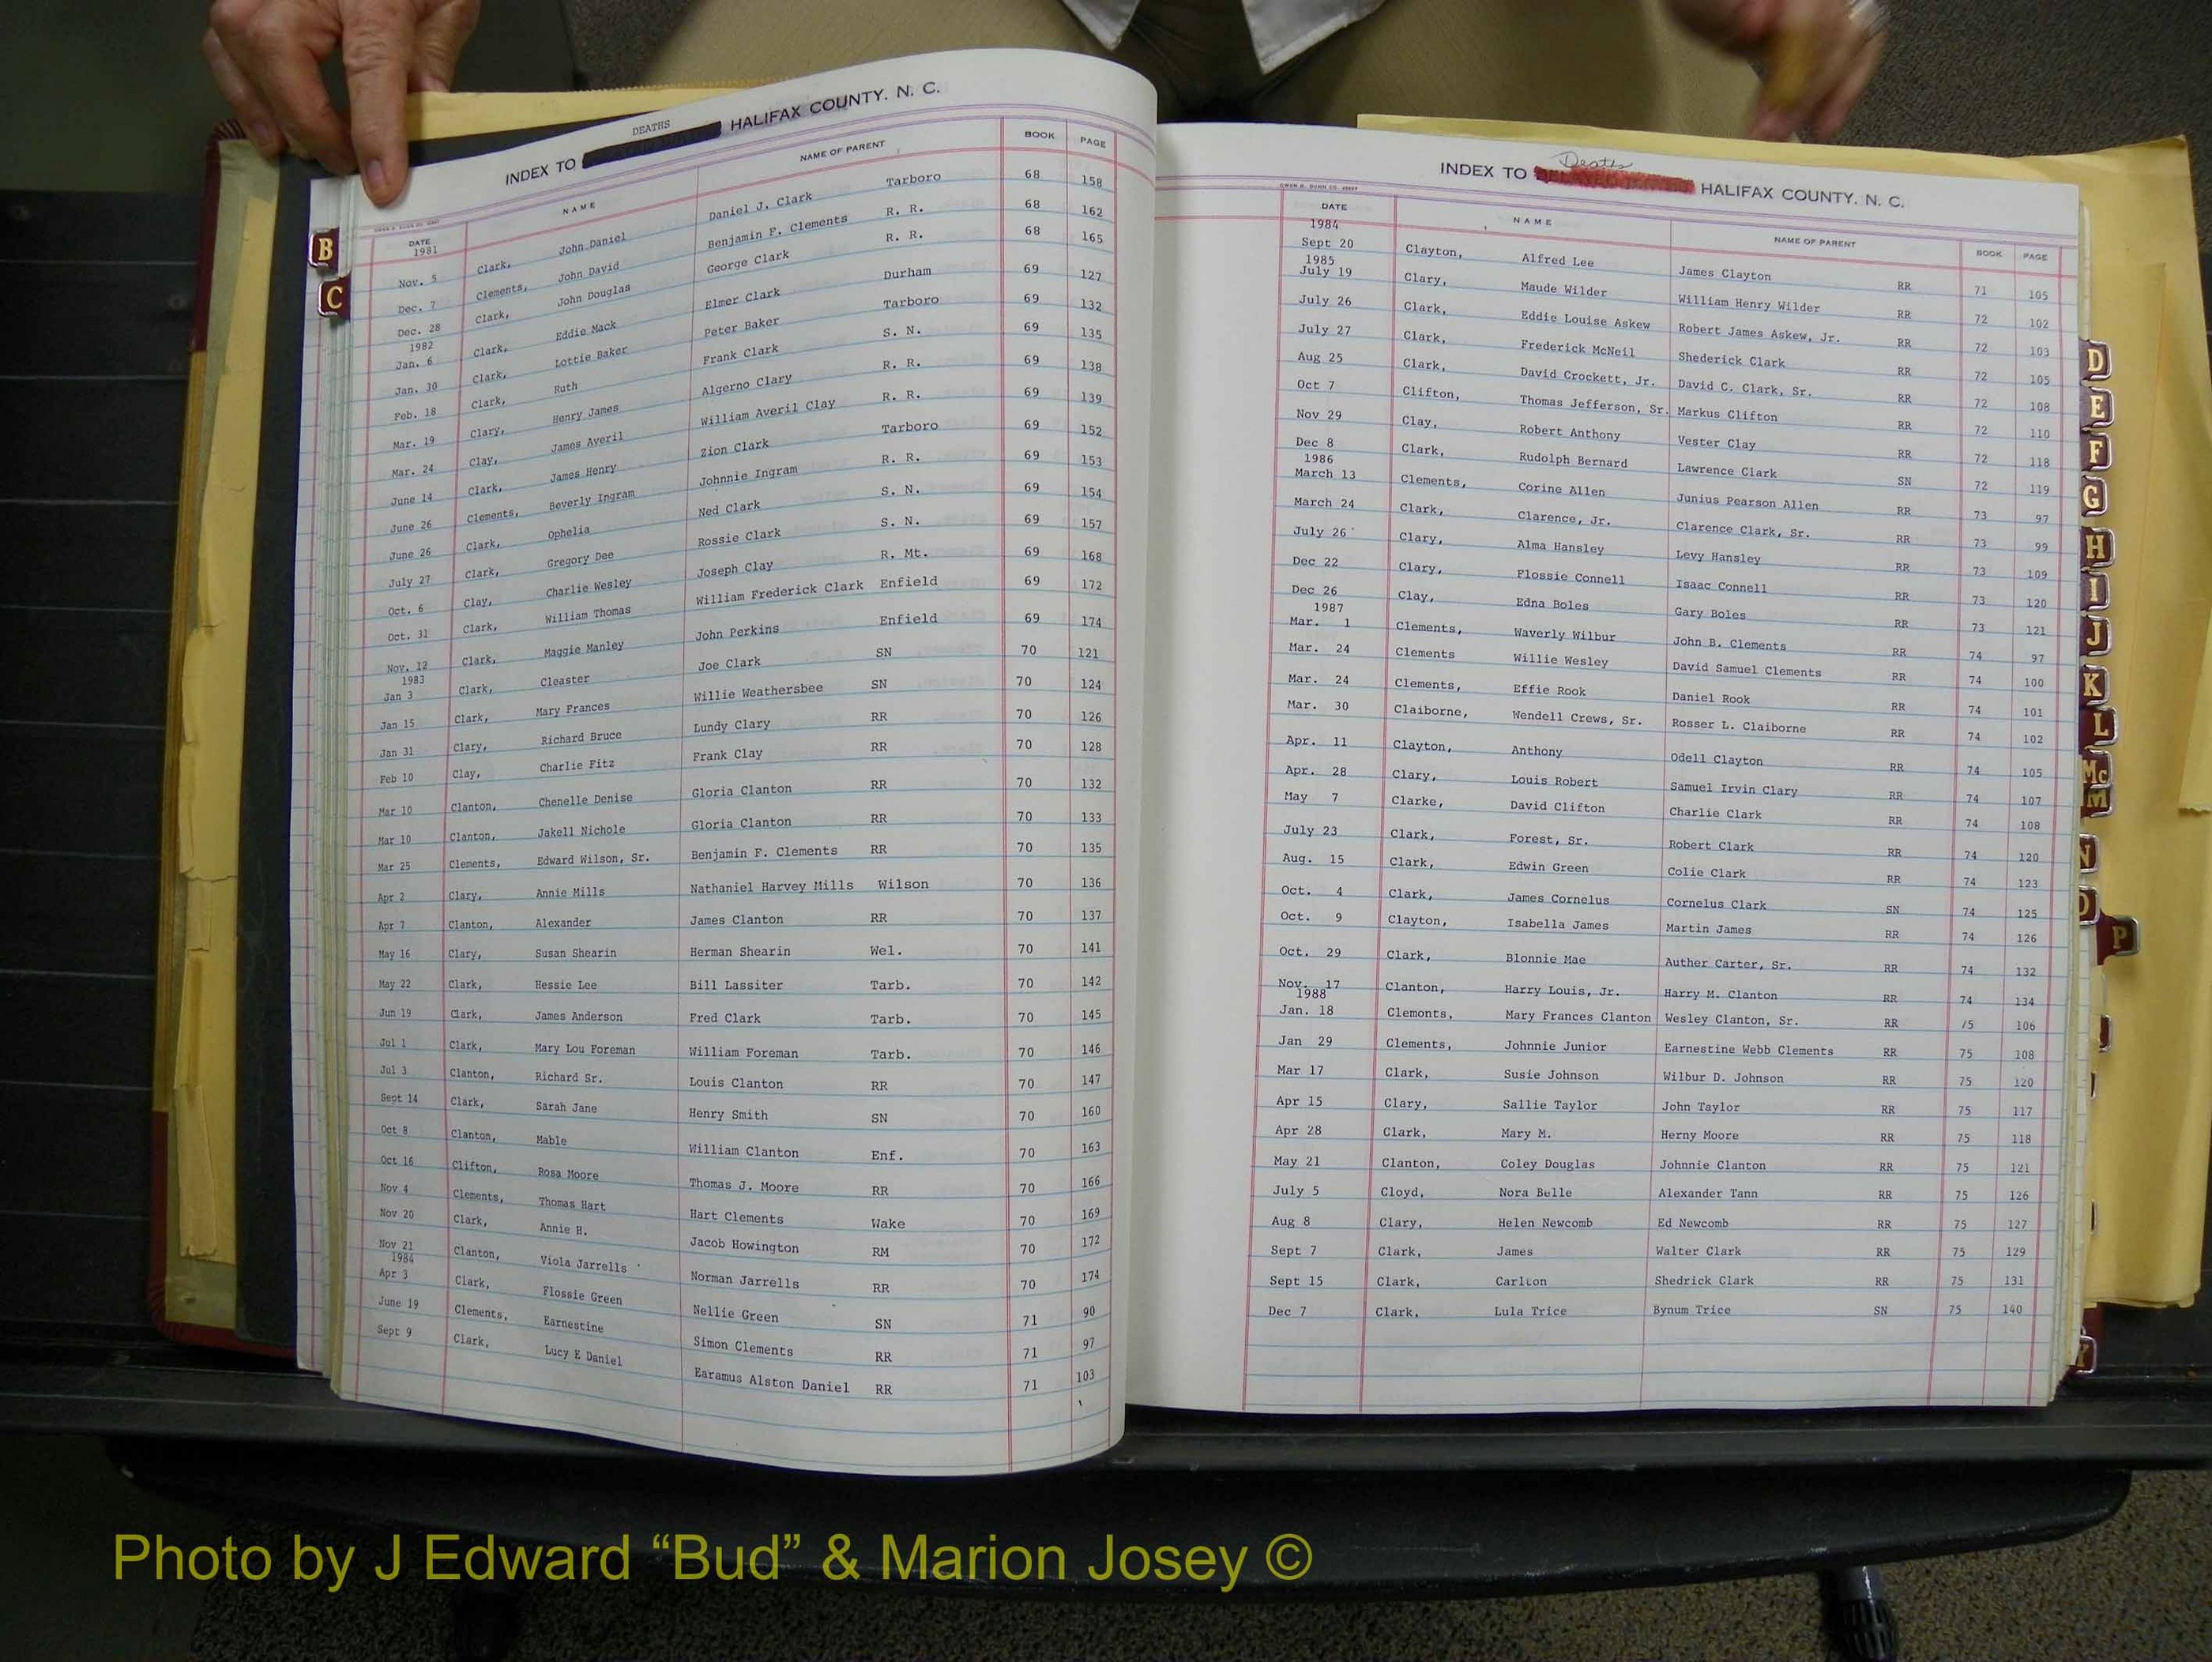 DEATHS
INDEX TO HALIFAX COUNTY, N. C.
DATE NAME NAME OF PARENT BOOK PAGE
1981
Nov. 5 Clark, John Daniel Daniel J. Clark Tarboro 68 158
Dec. 7 Clements, John David Benjamin F. Clements R. R. 68 162
Dec. 28 Clark, John Douglas George Clark R. R. 68 165
1982
Jan. 6 Clark, Eddie Mack Elmer Clark Durham 69 127
Jan. 30 Clark, Lottie Baker Peter Baker Tarboro 69 132
Feb. 18 Clark, Ruth Frank Clark S. N. 69 135
Mar. 19 Clary, Henry James Algerno Clary R. R. 69 138
Mar. 24 Clay, James Averil William Averil Clay R. R. 69 139
June 14 Clark, James Henry Zion Clark Tarboro 69 152
June 26 Clements, Beverly Ingram Johnnie Ingram R. R. 69 153
June 26 Clark, Ophelia Ned Clark S. N. 69 154
July 27 Clark, Gregory Dee Rossie Clark S. N. 69 157
Oct. 6 Clay, Charlie Wesley Joseph Clay R. Mt. 69 168
Oct. 31 Clark, William Thomas William Frederick Clark Enfield 69 172
Nov. 12 Clark, Maggie Manley John Perkins Enfield 69 174
1983
Jan 3 Clark, Cleaster Joe Clark SN 70 121
Jan 15 Clark, Mary Frances Willie Weathersbee SN 70 124
Jan 31 Clary, Richard Bruce Lundy Clary RR 70 126
Feb 10 Clay, Charlie Fitz Frank Clay RR 70 128
Mar 10 Clanton, Chenelle Denise Gloria Clanton RR 70 132
Mar 10 Clanton, Jakell Nichole Gloria Clanton RR 70 133
Mar 25 Clements, Edward Wilson, Sr. Benjamin F. Clements RR 70 135
Apr 2 Clary, Annie Mills Nathaniel Harvey Mills Wilson 70 136
Apr 7 Clanton, Alexander James Clanton RR 70 137
May 16 Clary, Susan Shearin Herman Shearin Wel. 70 141
May 22 Clark, Hessie Lee Bill Lassiter Tarb. 70 142
Jun 19 Clark, James Anderson Fred Clark Tarb. 70 145
Jul 1 Clark, Mary Lou Foreman William Foreman Tarb. 70 146
Jul 3 Clanton, Richard Sr. Louis Clanton RR 70 147
Sept 14 Clark, Sarah Jane Henry Smith SN 70 160
Oct 8 Clanton, Mable William Clanton Enf. 70 163
Oct 16 Clifton, Rosa Moore Thomas J. Moore RR 70 166
Nov 4 Clements, Thomas Hart Hart Clements Wake 70 169
Nov 20 Clark, Annie H. Jacob Howington RM 70 172
Nov 21 Clanton, Viola Jarrells Norman Jarrells RR 70 174
1984
Apr 3 Clark, Flossie Green Nellie Green SN 71 90
June 19 Clements, Earnestine Simon Clements RR 71 97
Sept 9 Clark, Lucy E Daniel Earamus Alston Daniel RR 71 103
Death
INDEX TO HALIFAX COUNTY, N. C.
DATE NAME NAME OF PARENT BOOK PAGE
1984
Sept 20 Clayton, Alfred Lee James Clayton RR 71 105
1985
July 19 Clary, Maude Wilder William Henry Wilder RR 72 102
July 26 Clark, Eddie Louise Askew Robert James Askew, Jr. RR 72 103
July 27 Clark, Frederick McNeil Shederick Clark RR 72 105
Aug 25 Clark, David Crockett, Jr. David C. Clark, Sr. RR 72 108
Oct 7 Clifton, Thomas Jefferson, Sr. Markus Clifton RR 72 110
Nov 29 Clay, Robert Anthony Vester Clay RR 72 118
Dec 8 Clark, Rudolph Bernard Lawrence Clark SN 72 119
1986
March 13 Clements, Corine Allen Junius Pearson Allen RR 73 97
March 24 Clark, Clarence, Jr. Clarence Clark, Sr. RR 73 99
July 26 Clary, Alma Hansley Levy Hansley RR 73 109
Dec 22 Clary, Flossie Connell Isaac Connell RR 73 120
Dec 26 Clay, Edna Boles Gary Boles RR 73 121
1987
Mar. 1 Clements, Waverly Wilbur John B. Clements RR 74 97
Mar. 24 Clements Willie Wesley David Samuel Clements RR 74 100
Mar. 24 Clements, Effie Rook Daniel Rook RR 74 101
Mar. 30 Claiborne, Wendell Crews, Sr. Rosser L. Claiborne RR 74 102
Apr. 11 Clayton, Anthony Odell Clayton RR 74 105
Apr. 28 Clary, Louis Robert Samuel Irvin Clary RR 74 107
May 7 Clarke, David Clifton Charlie Clark RR 74 108
July 23 Clark, Forest, Sr. Robert Clark RR 74 120
Aug. 15 Clark, Edwin Green Colie Clark RR 74 123
Oct. 4 Clark, James Cornelus Cornelus Clark SN 74 125
Oct. 9 Clayton, Isabella James Martin James RR 74 126
Oct. 29 Clark, Blonnie Mae Auther Carter, Sr. RR 74 132
Nov. 17 Clanton, Harry Louis, Jr. Harry M. Clanton RR 74 134
1988
Jan. 18 Clemonts, Mary Frances Clanton Wesley Clanton, Sr. RR 75 106
Jan 29 Clements, Johnnie Junior Earnestine Webb Clements RR 75 108
Mar 17 Clark, Susie Johnson Wilbur D. Johnson RR 75 120
Apr 15 Clary, Sallie Taylor John Taylor RR 75 117
Apr 28 Clark, Mary M. Herny Moore RR 75 118
May 21 Clanton, Coley Douglas Johnnie Clanton RR 75 121
July 5 Cloyd, Nora Belle Alexander Tann RR 75 126
Aug 8 Clary, Helen Newcomb Ed Newcomb RR 75 127
Sept 7 Clark, James Walter Clark RR 75 129
Sept 15 Clark, Carlton Shedrick Clark RR 75 131
Dec 7 Clark, Lula Trice Bynum Trice SN 75 140
B
C
D
E
F
G
H
I
J
K
L
Mc
M
N
O
P
Photo by J Edward “Bud” & Marion Josey ©